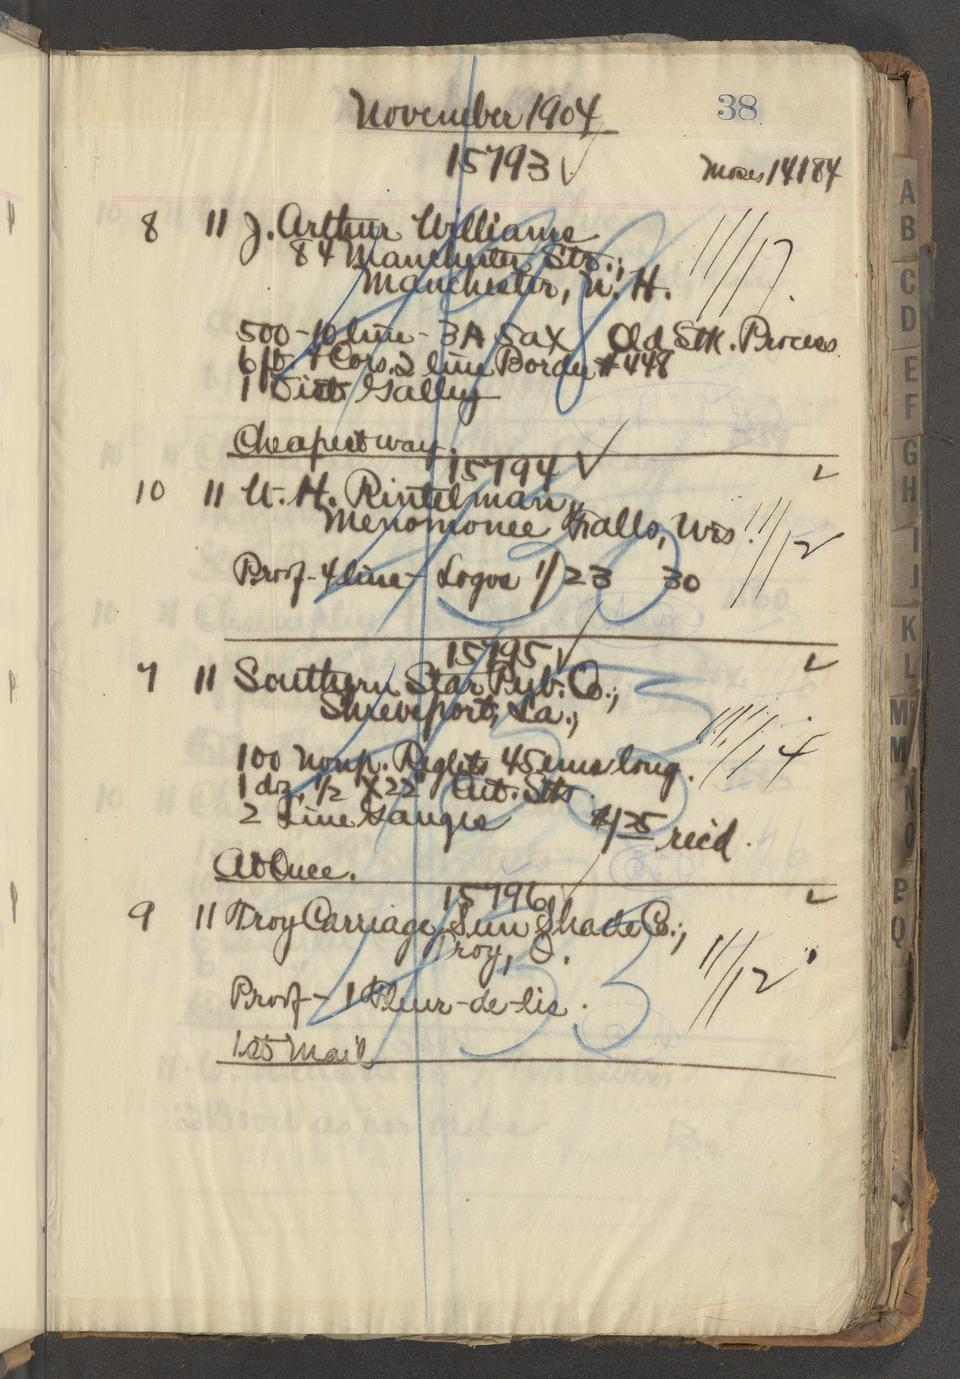 November 1904
38
15793 ✓
Moses 14184
8 11 J. Arthur Williams
84 Manchester Str.,
Manchester, N. H.
11/17
500-10 line - 3A Sax Old Stk. Process
6 ft. 4 Cors. 2 line Border #448
1 Galley
Cheapest way.
15794 ✓
10 11 W. H. Rintelman,
Menomonee Falls, Wis.
11/12
Proof - 4 line - Logos 1/23 30
15795 ✓
7 11 Southern Star Pub. Co.,
Shreveport, La.,
11/14
100 Nonp. Reglets 45 ems long.
1 doz. 1/2 X 22" Stks.
2 Line Gauges
$1/25 rec'd.
At Once.
15796 ✓
9 11 Troy Carriage Sun Shade Co.,
Troy, O.
11/12
Proof - 1 Fleur-de-lis.
Mail
A
B
C
D
E
F
G
H
I
J
K
L
Mc
M
N
O
P
Q